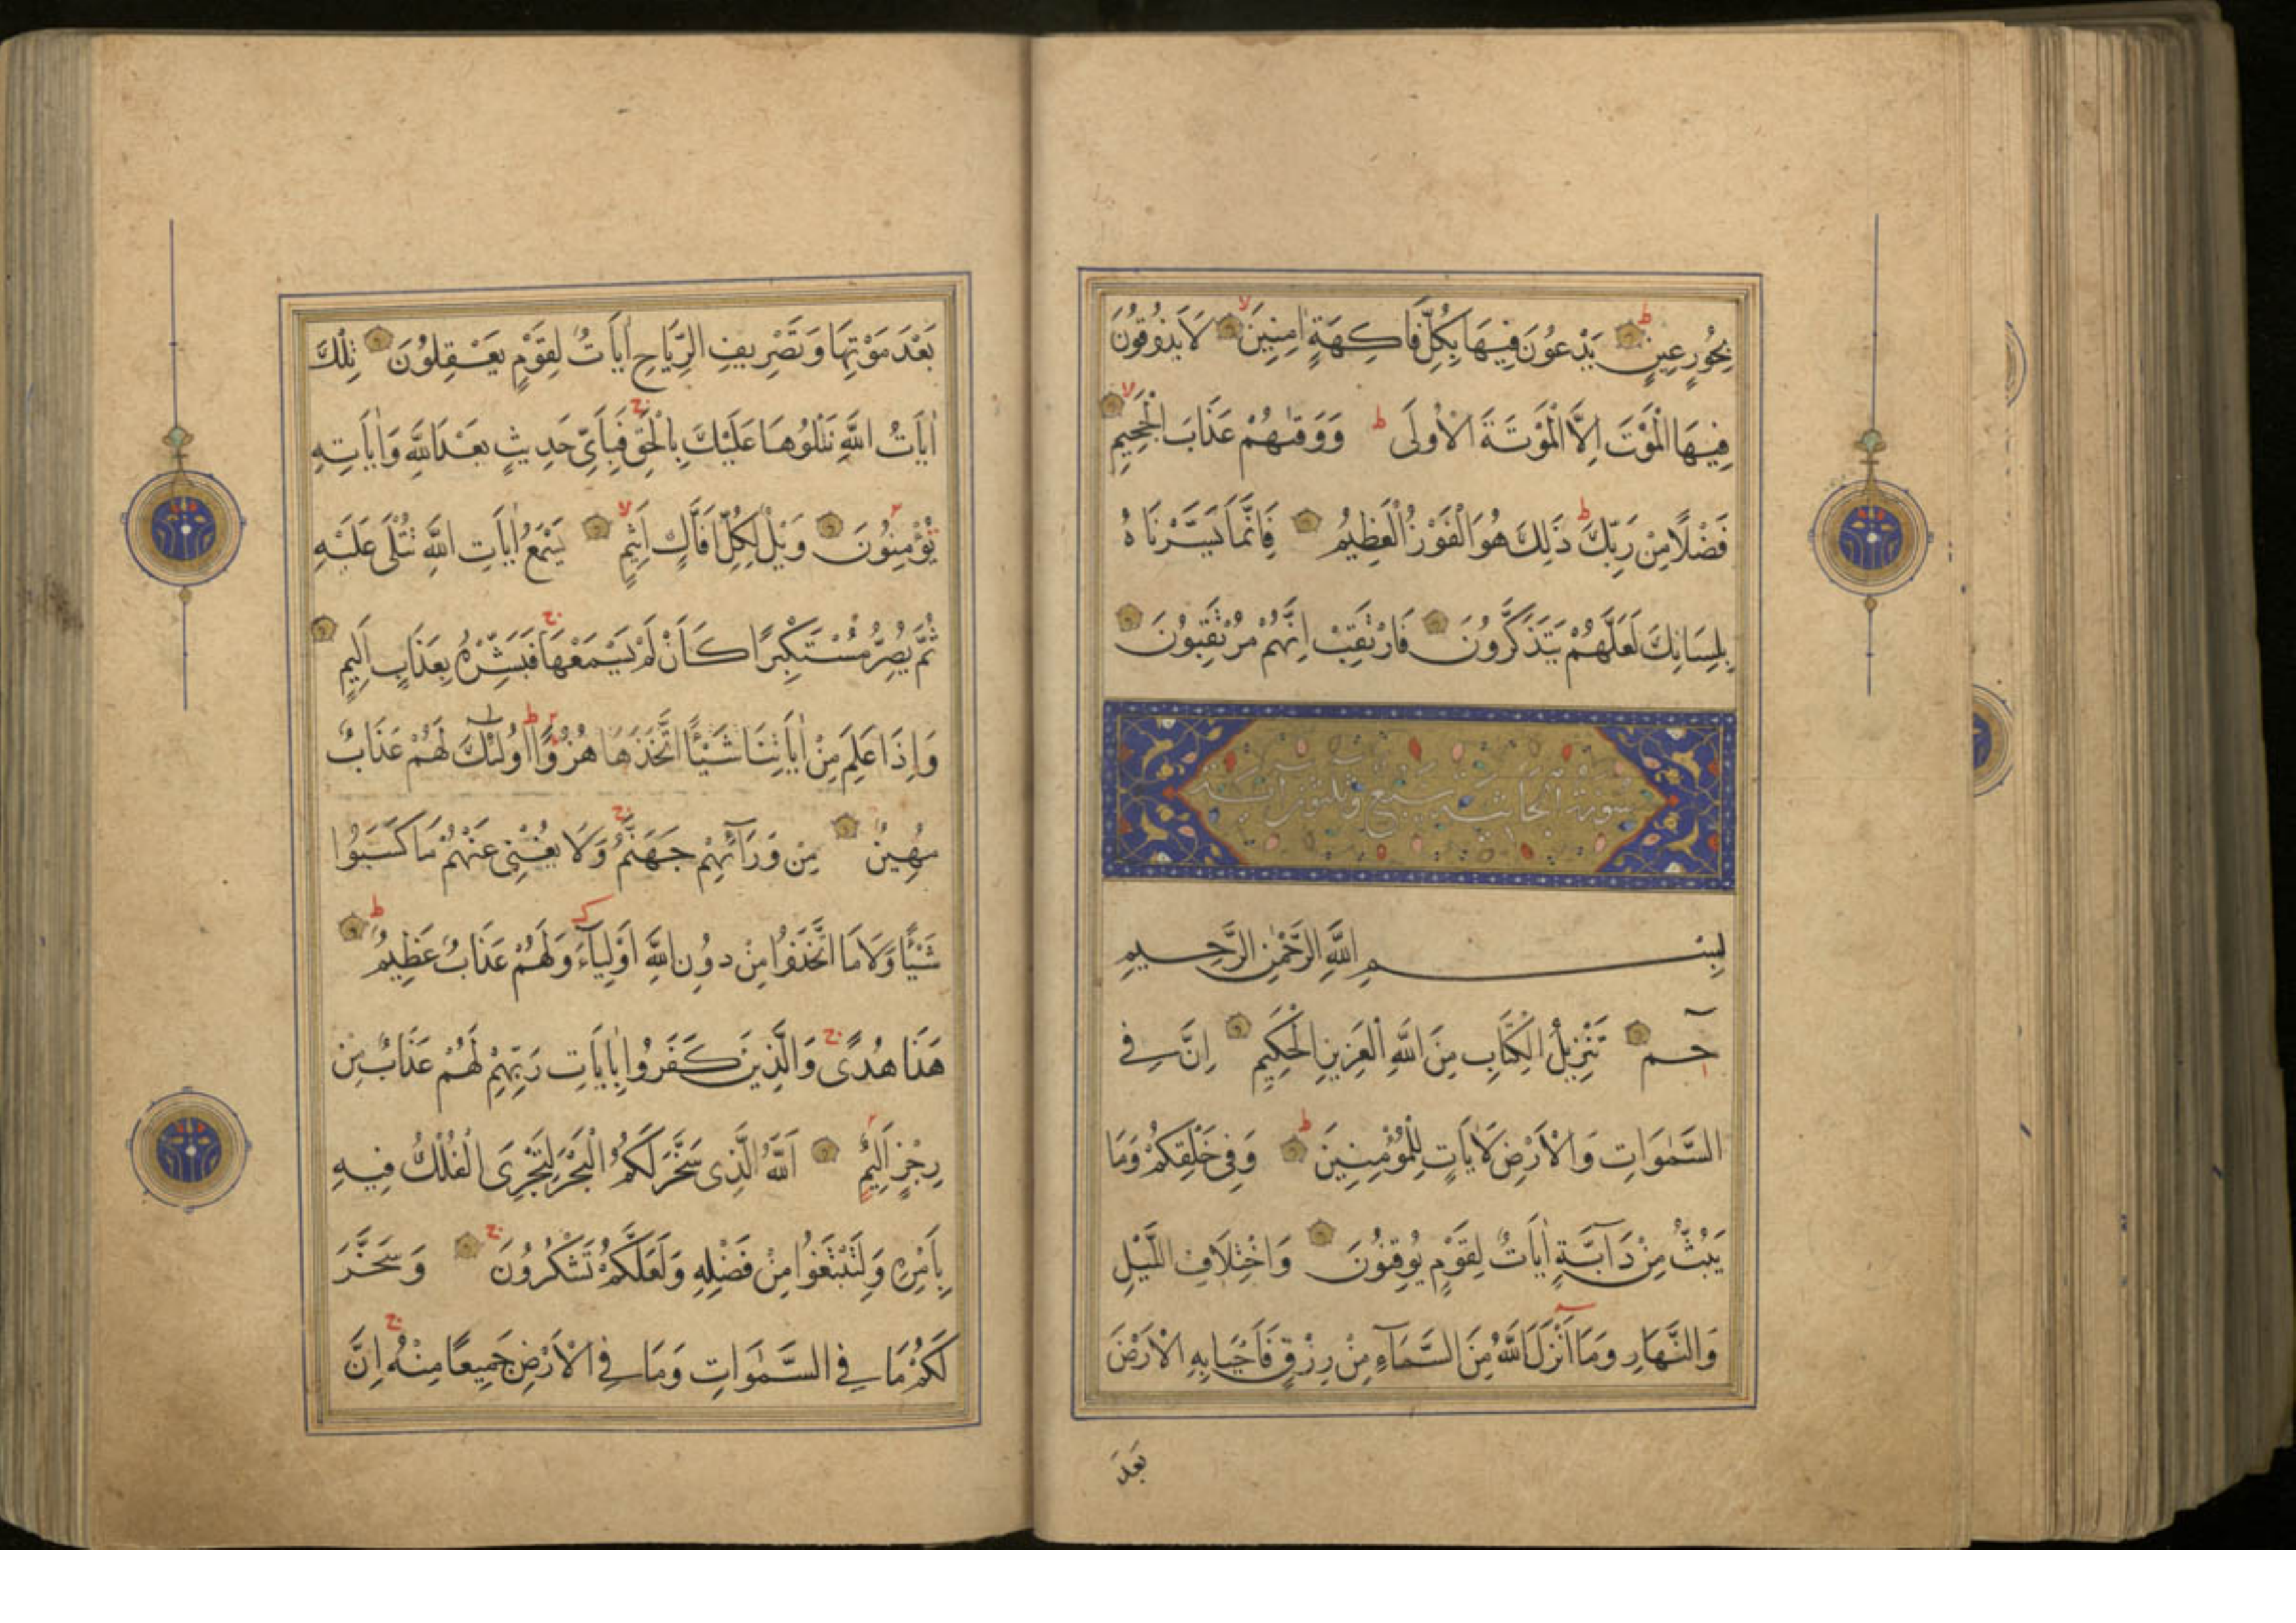 بِحُورٍ عِينٍ يَدْعُونَ فِيهَا بِكُلِّ فَاكِهَةٍ اٰمِنِينَ لَا يَذُوقُونَ
فِيهَا الْمَوْتَ اِلَّا الْمَوْتَةَ الْاُولَى وَوَقٰهُمْ عَذَابَ الْجَحِيمِ
فَضْلًا مِنْ رَبِّكَ ذَلِكَ هُوَ الْفَوْزُ الْعَظِيمُ فَاِنَّمَا يَسَّرْنَاهُ
بِلِسَانِكَ لَعَلَّهُمْ يَتَذَكَّرُونَ فَارْتَقِبْ اِنَّهُمْ مُرْتَقِبُونَ
سورة الجاثية سبع وثلثون اية
بِسْمِ اللّٰهِ الرَّحْمٰنِ الرَّحِيمِ
حٓم تَنْزِيلُ الْكِتَابِ مِنَ اللّٰهِ الْعَزِيزِ الْحَكِيمِ اِنَّ فِي
السَّمٰوَاتِ وَالْاَرْضِ لَاٰيَاتٍ لِلْمُؤْمِنِينَ وَفِي خَلْقِكُمْ وَمَا
يَبُثُّ مِنْ دَآبَّةٍ اٰيَاتٌ لِقَوْمٍ يُوقِنُونَ وَاخْتِلَافِ اللَّيْلِ
وَالنَّهَارِ وَمَآ اَنْزَلَ اللّٰهُ مِنَ السَّمَآءِ مِنْ رِزْقٍ فَاَحْيَا بِهِ الْاَرْضَ
بَعْدَ
بَعْدَ مَوْتِهَا وَتَصْرِيفِ الرِّيَاحِ اٰيَاتٌ لِقَوْمٍ يَعْقِلُونَ تِلْكَ
اٰيَاتُ اللّٰهِ نَتْلُوهَا عَلَيْكَ بِالْحَقِّ فَبِاَىِّ حَدِيثٍ بَعْدَ اللّٰهِ وَاٰيَاتِهِ
يُؤْمِنُونَ وَيْلٌ لِكُلِّ اَفَّاكٍ اَثِيمٍ يَسْمَعُ اٰيَاتِ اللّٰهِ تُتْلَى عَلَيْهِ
ثُمَّ يُصِرُّ مُسْتَكْبِرًا كَاَنْ لَمْ يَسْمَعْهَا فَبَشِّرْهُ بِعَذَابٍ اَلِيمٍ
وَاِذَا عَلِمَ مِنْ اٰيَاتِنَا شَيْئًا اتَّخَذَهَا هُزُوًا اُولٰئِكَ لَهُمْ عَذَابٌ
مُهِينٌ مِنْ وَرَآئِهِمْ جَهَنَّمُ وَلَا يُغْنِي عَنْهُمْ مَا كَسَبُوا
شَيْئًا وَلَا مَا اتَّخَذُوا مِنْ دُونِ اللّٰهِ اَوْلِيَآءَ وَلَهُمْ عَذَابٌ عَظِيمٌ
هَذَا هُدًى وَالَّذِينَ كَفَرُوا بِاٰيَاتِ رَبِّهِمْ لَهُمْ عَذَابٌ مِنْ
رِجْزٍ اَلِيمٌ اَللّٰهُ الَّذِي سَخَّرَ لَكُمُ الْبَحْرَ لِتَجْرِيَ الْفُلْكُ فِيهِ
بِاَمْرِهِ وَلِتَبْتَغُوا مِنْ فَضْلِهِ وَلَعَلَّكُمْ تَشْكُرُونَ وَسَخَّرَ
لَكُمْ مَا فِي السَّمٰوَاتِ وَمَا فِي الْاَرْضِ جَمِيعًا مِنْهُ اِنَّ